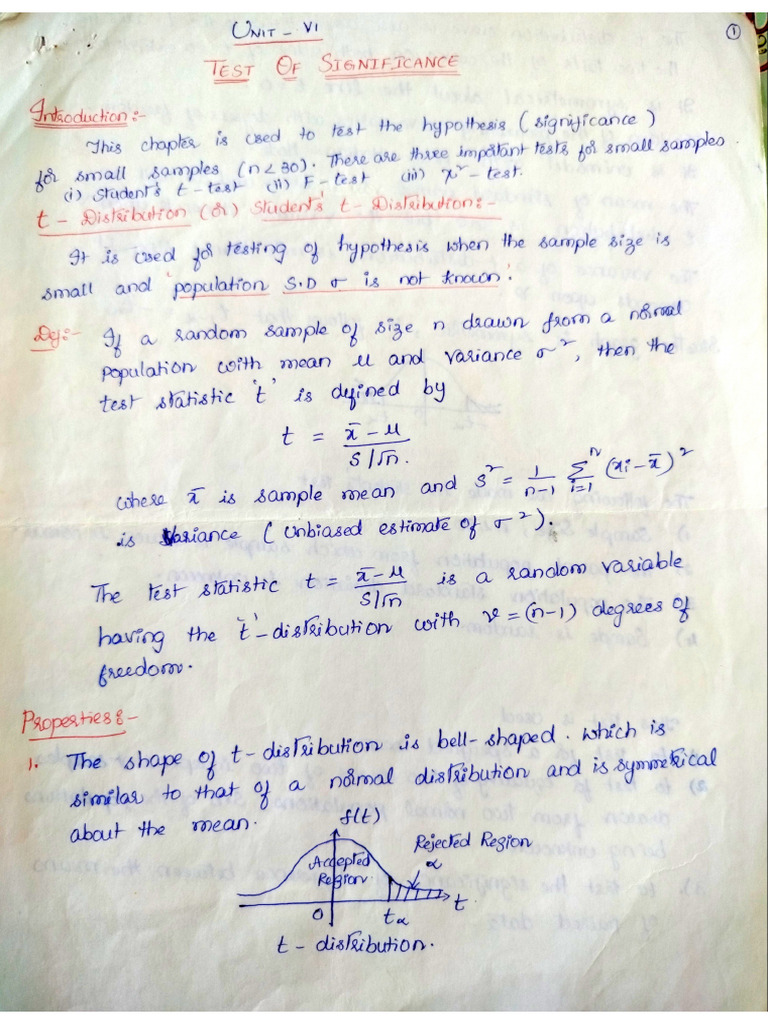 UNIT - VI
1
TEST OF SIGNIFICANCE
Introduction:-
This chapter is used to test the hypothesis (significance)
for small samples (n < 30). There are three important tests for small samples.
(i) Student's t-test (ii) F-test (iii) χ²-test.
t - Distribution (or) Student's t-Distribution:-
It is used for testing of hypothesis when the sample size is
small and 'population S.D σ is not known'.
Def:- If a random sample of size n drawn from a normal
population with mean μ and variance σ², then the
test statistic 't' is defined by
t = (x̄ - μ) / (S/√n).
where x̄ is sample mean and S² = 1/(n-1) Σ_{i=1}^{n} (xi - x̄)²
is Variance (Unbiased estimate of σ²).
The test statistic t = (x̄ - μ) / (S/√n) is a random variable
having the 't'-distribution with ν = (n-1) degrees of
freedom.
Properties:-
1. The shape of t-distribution is bell-shaped. which is
similar to that of a normal distribution and is symmetrical
about the mean.
f(t)
Rejected Region
α
Accepted
Region
0
tα
t
t - distribution.